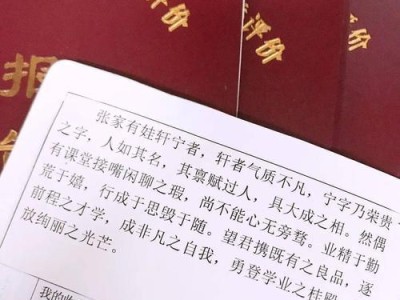 评价
评价
报
张家有娃轩宁者，轩者气质不凡，宁字乃荣贵
之字，人如其名，其禀赋过人，具大成之相。然偶
有课堂接嘴闲聊之瑕，尚不能心无旁骛。业精于勤
荒于嬉，行成于思毁于随。望君携既有之良品，逐
前程之才学，成非凡之自我，勇登学业之桂殿
放绚丽之光芒。
我的收